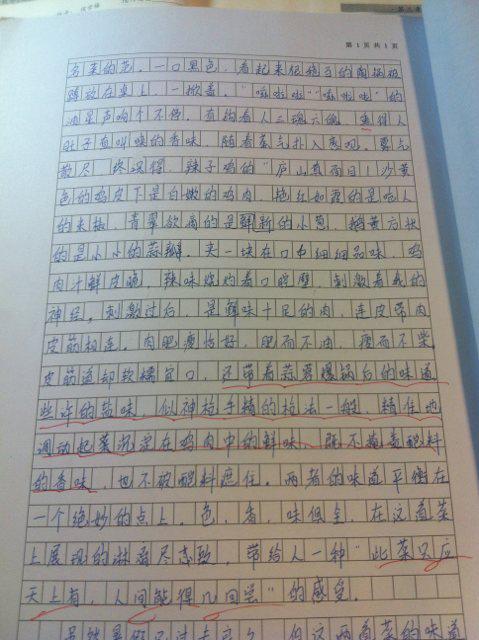 第1页共1页
名菜的范。一口黑色,看起来很稳当的陶锅被
蹾放在桌上,一掀盖,“嗞啦啦”“嗞啦啦”的
油星声响个不停,直钩着人三魂六魄,惹得人
肚子直叫唤的香味,随着蒸气扑入鼻咽。雾气
散尽,终识得,辣子鸡的“庐山真面目”!沙黄
色的鸡皮下是白嫩的鸡肉,艳红如霞的是呛人
的米椒,青翠欲滴的是鲜新的小葱,鹅黄方状
的是小小的蒜瓣。夹一块在口中细细品味,鸡
肉汁鲜皮脆,辣味烧灼着口腔壁,刺激着我的
神经。刺激过后,是鲜味十足的肉,连皮带肉
皮筋相连。肉肥瘦恰好,肥而不油,瘦而不柴
皮筋道却软糯宜口,还带着蒜蓉爆锅后的味道
些许的盐味,似神枪手精的枪法一般,精准地
调动起荤沉淀在鸡肉中的鲜味,既不掩盖配料
的香味,也不被配料遮住。两者的味道平衡在
一个绝妙的点上。色,香,味俱全,在这道菜
上展现的淋漓尽致,带给人一种“此菜只应
天上有,人间能得几回尝”的感受。